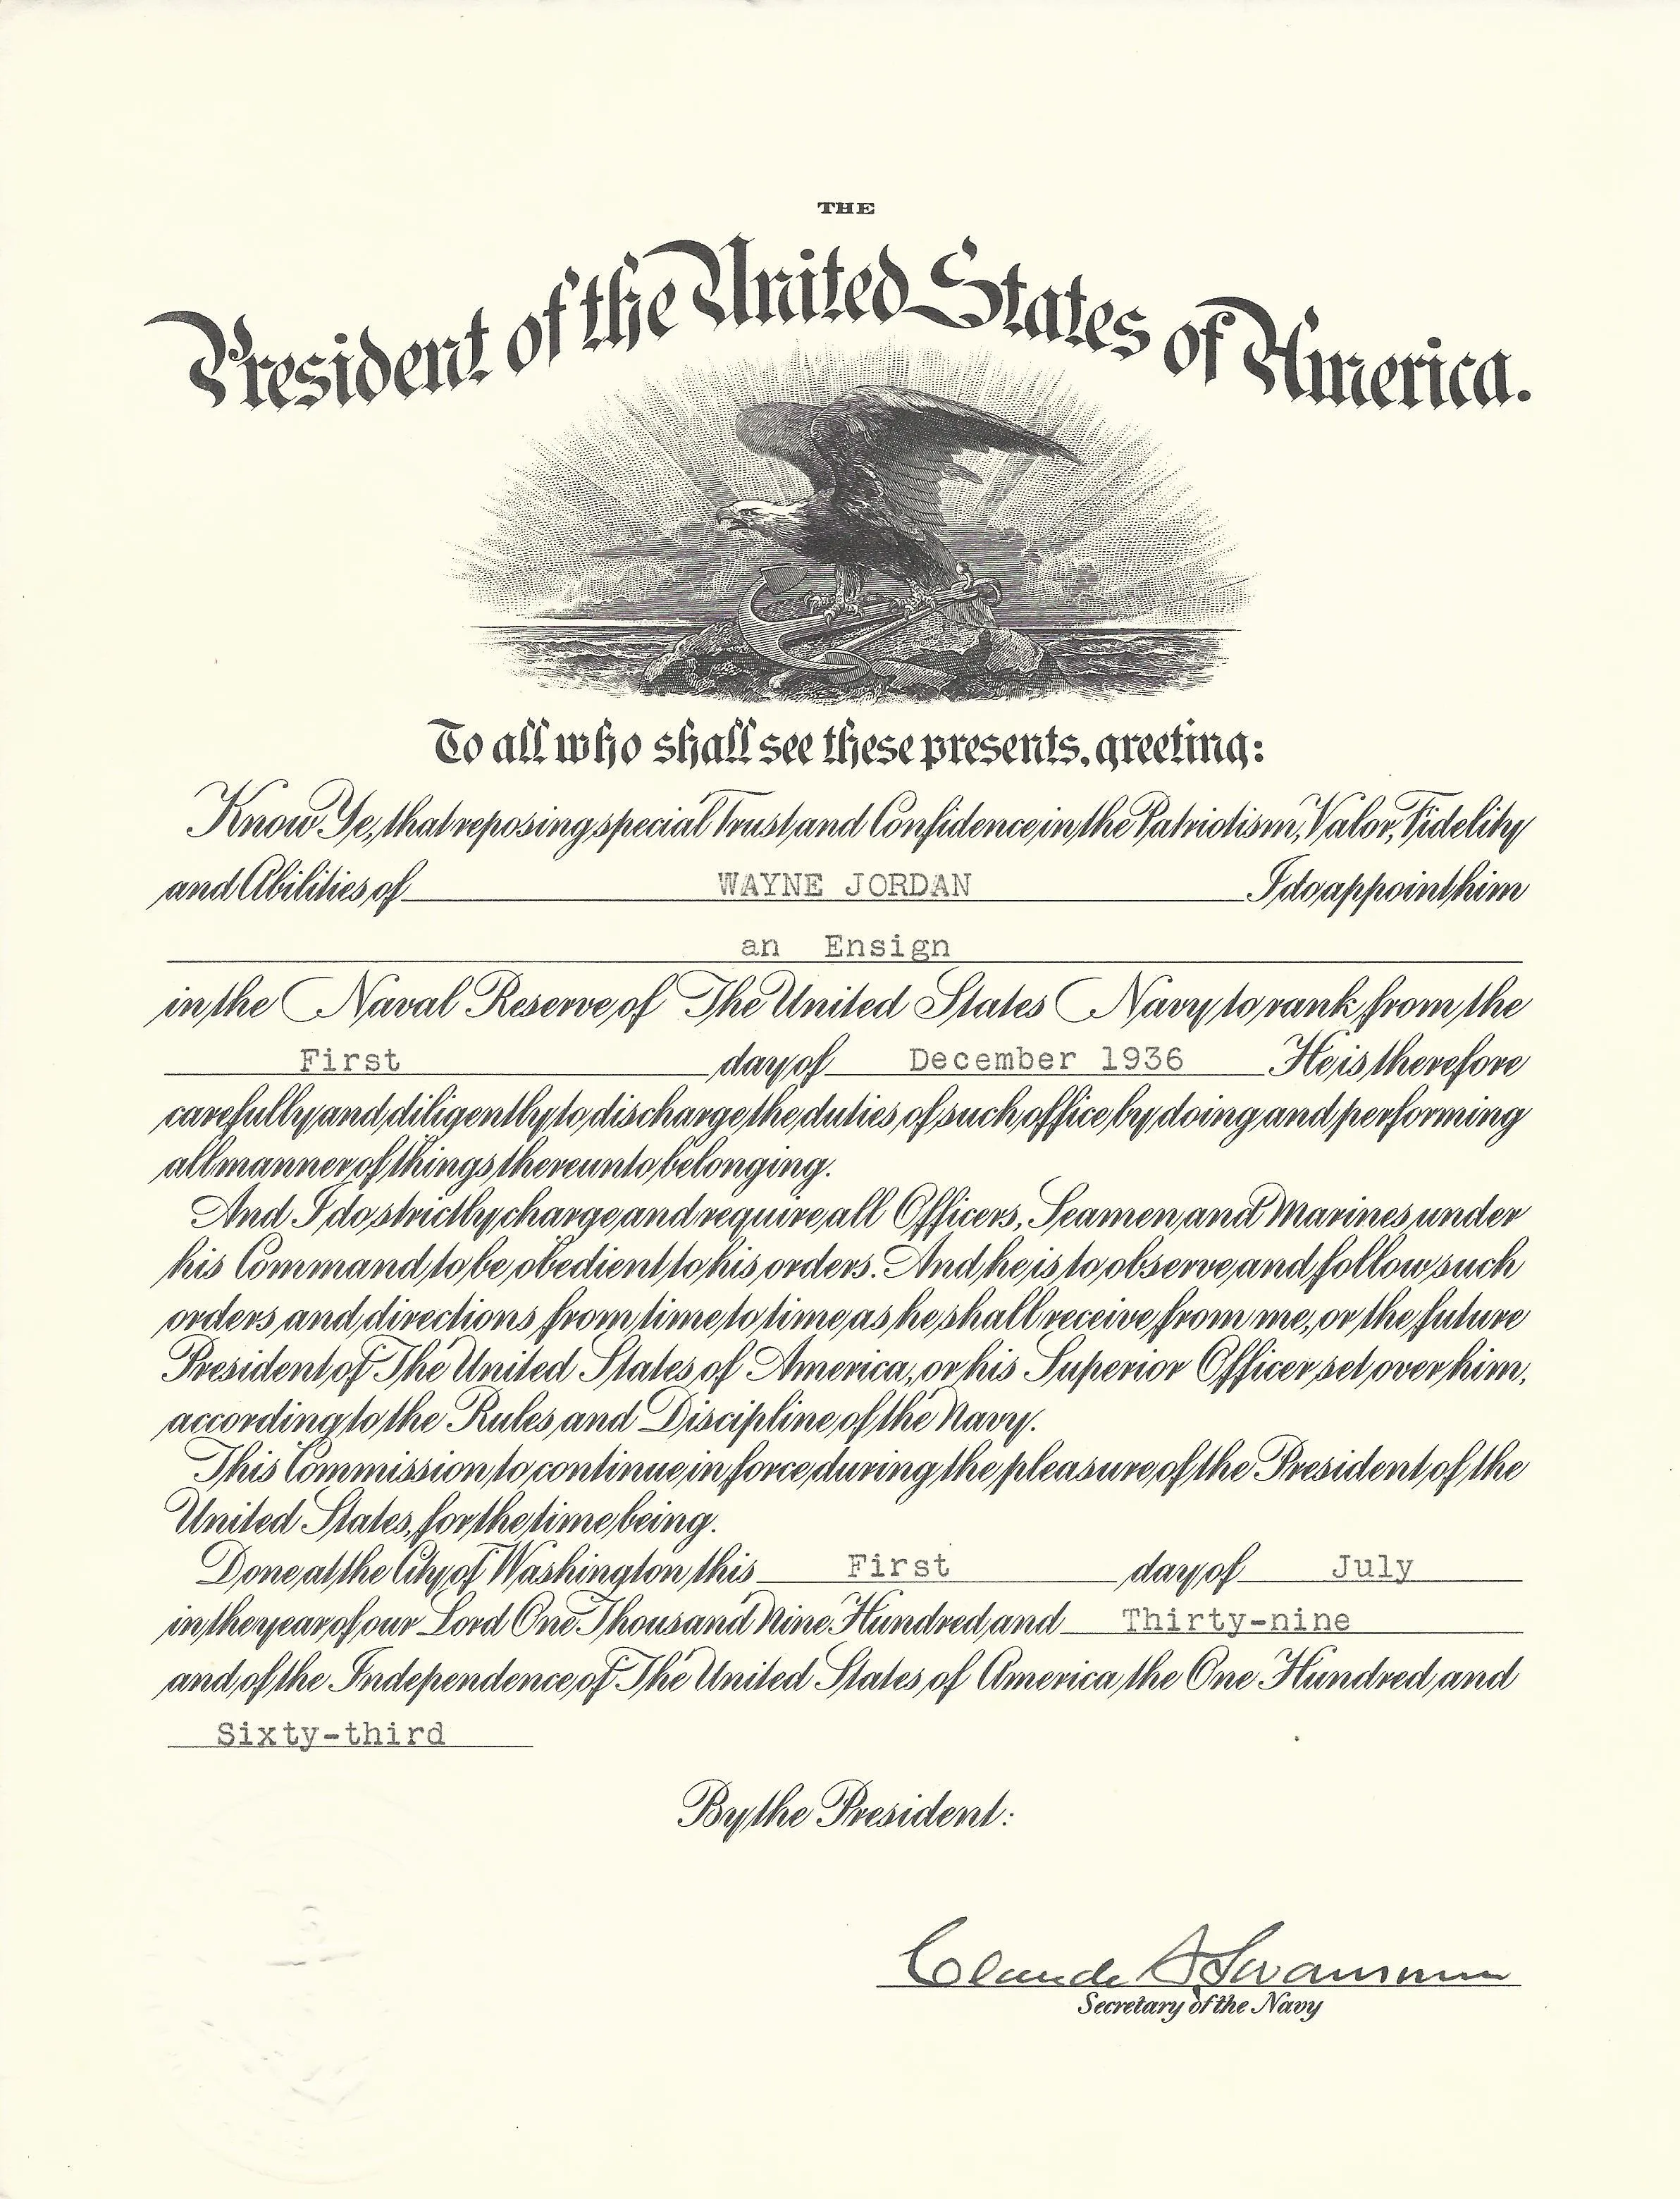 THE
President of the United States of America.
To all who shall see these presents, greeting:
Know Ye, that reposing special Trust and Confidence in the Patriotism, Valor, Fidelity
and Abilities of WAYNE JORDAN I do appoint him
an Ensign
in the Naval Reserve of The United States Navy to rank from the
First day of December 1936 He is therefore
carefully and diligently to discharge the duties of such office by doing and performing
all manner of things thereunto belonging.
And I do strictly charge and require all Officers, Seamen and Marines under
his Command to be obedient to his orders. And he is to observe and follow such
orders and directions from time to time as he shall receive from me, or the future
President of The United States of America, or his Superior Officer set over him,
according to the Rules and Discipline of the Navy.
This Commission to continue in force during the pleasure of the President of the
United States, for the time being.
Done at the City of Washington this First day of July
in the year of our Lord One Thousand Nine Hundred and Thirty-nine
and of the Independence of The United States of America the One Hundred and
Sixty-third
By the President:
Claude A Swanson
Secretary of the Navy